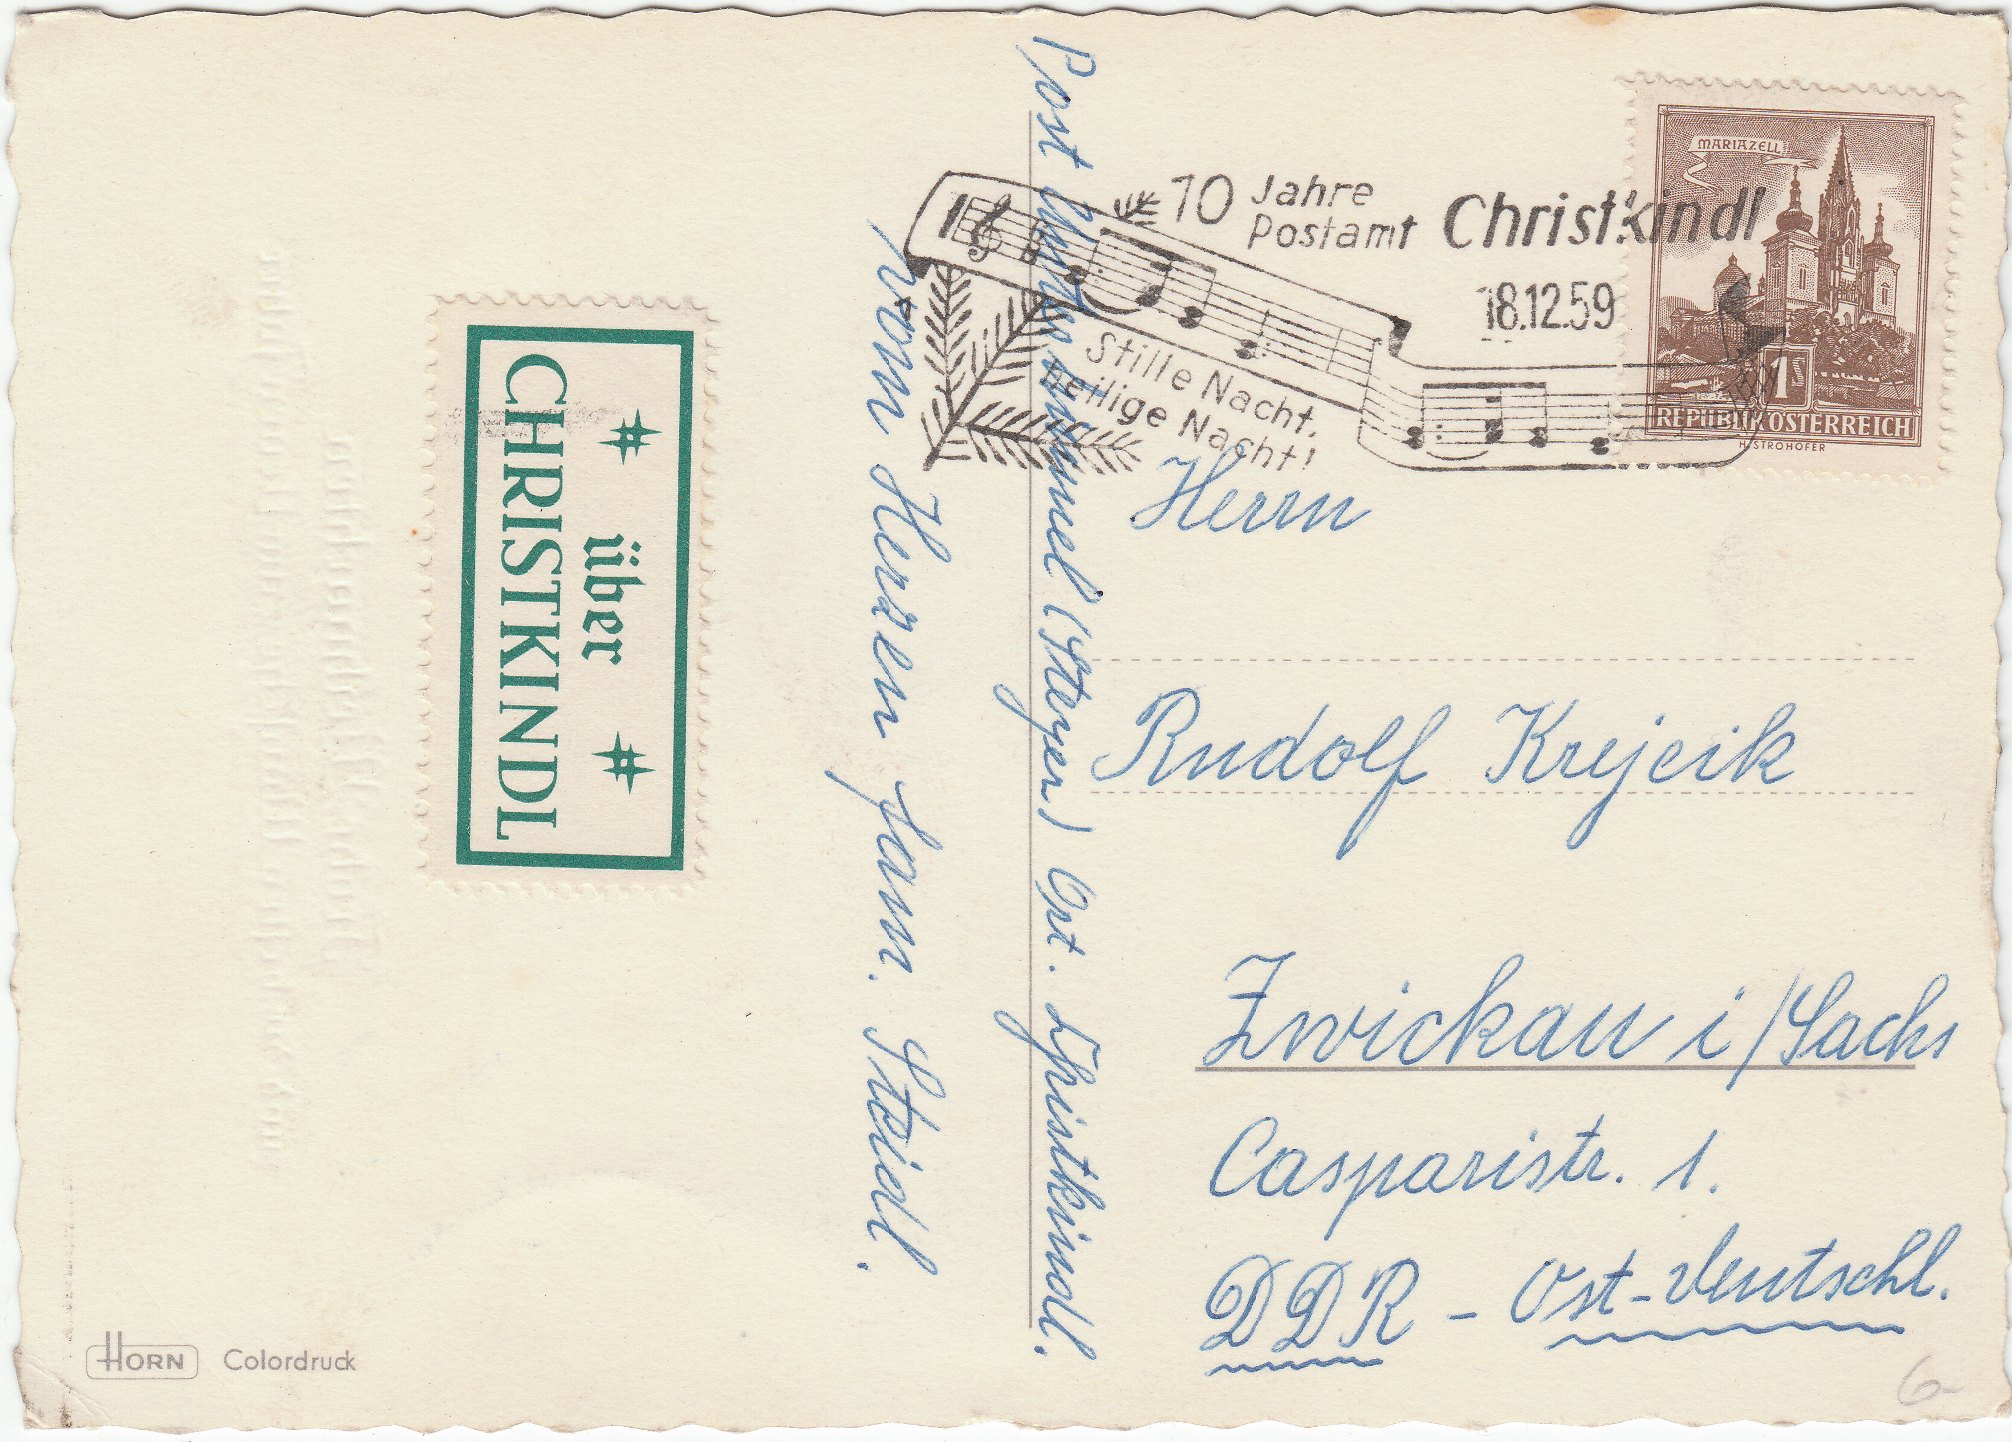 10 Jahre
Postamt Christkindl
18.12.59
Stille Nacht,
heilige Nacht!
MARIAZELL
1 S
REPUBLIK ÖSTERREICH
H. STROHOFER
über
CHRISTKINDL
Post Unterhimmel (Steyer) Ort. Christkindl.
vom Herzen Fam. Stoidl.
Herrn
Rudolf Krejcik
Zwickau i/Sachs
Casparistr. 1.
DDR - Ost-Deutschl.
HORN Colordruck
6-